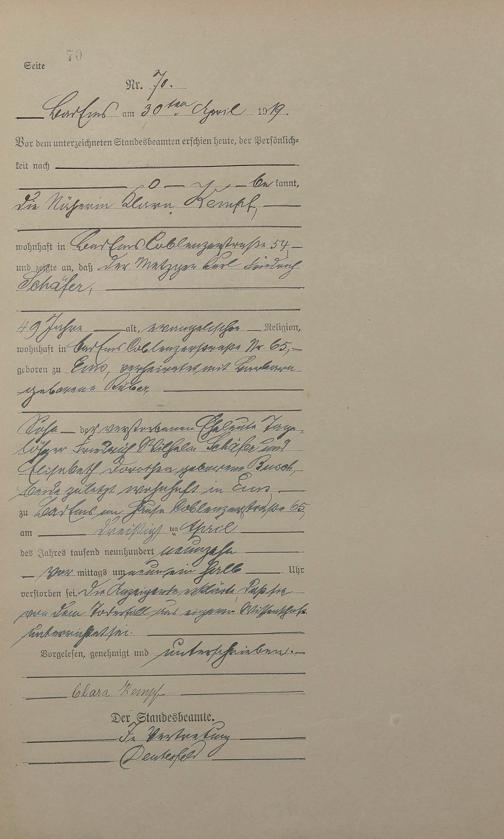 70
Seite
Nr. 70.
Bad Ems am 30ten April 1919.
Vor dem unterzeichneten Standesbeamten erschien heute, der Persönlich-
keit nach
be kannt,
die Näherin Klara Kempf,
wohnhaft in Bad Ems Coblenzerstraße 54
und zeigte an, daß der Metzger Karl Friedrich
Schäfer,
49 Jahre alt, evangelischer Religion,
wohnhaft in Bad Ems Coblenzerstraße Nr 65,
geboren zu Ems, verheiratet mit Barbara
geborene
Sohn der verstorbenen Eheleute Tage-
löhner Friedrich Wilhelm Schäfer und
Elisabeth Dorothea geborene Busch,
beide zuletzt wohnhaft in Ems
zu Bad Ems im Hause Coblenzerstraße 65,
am dreißigsten April
des Jahres tausend neunhundert neunzehn
vor mittags um neunein halb Uhr
verstorben sei. Die Anzeigende erklärte, daß sie
von dem Todesfall aus eigener Wissenschaft
unterrichtet sei.
Vorgelesen, genehmigt und unterschrieben.
Clara Kempf
Der Standesbeamte.
In Vertretung